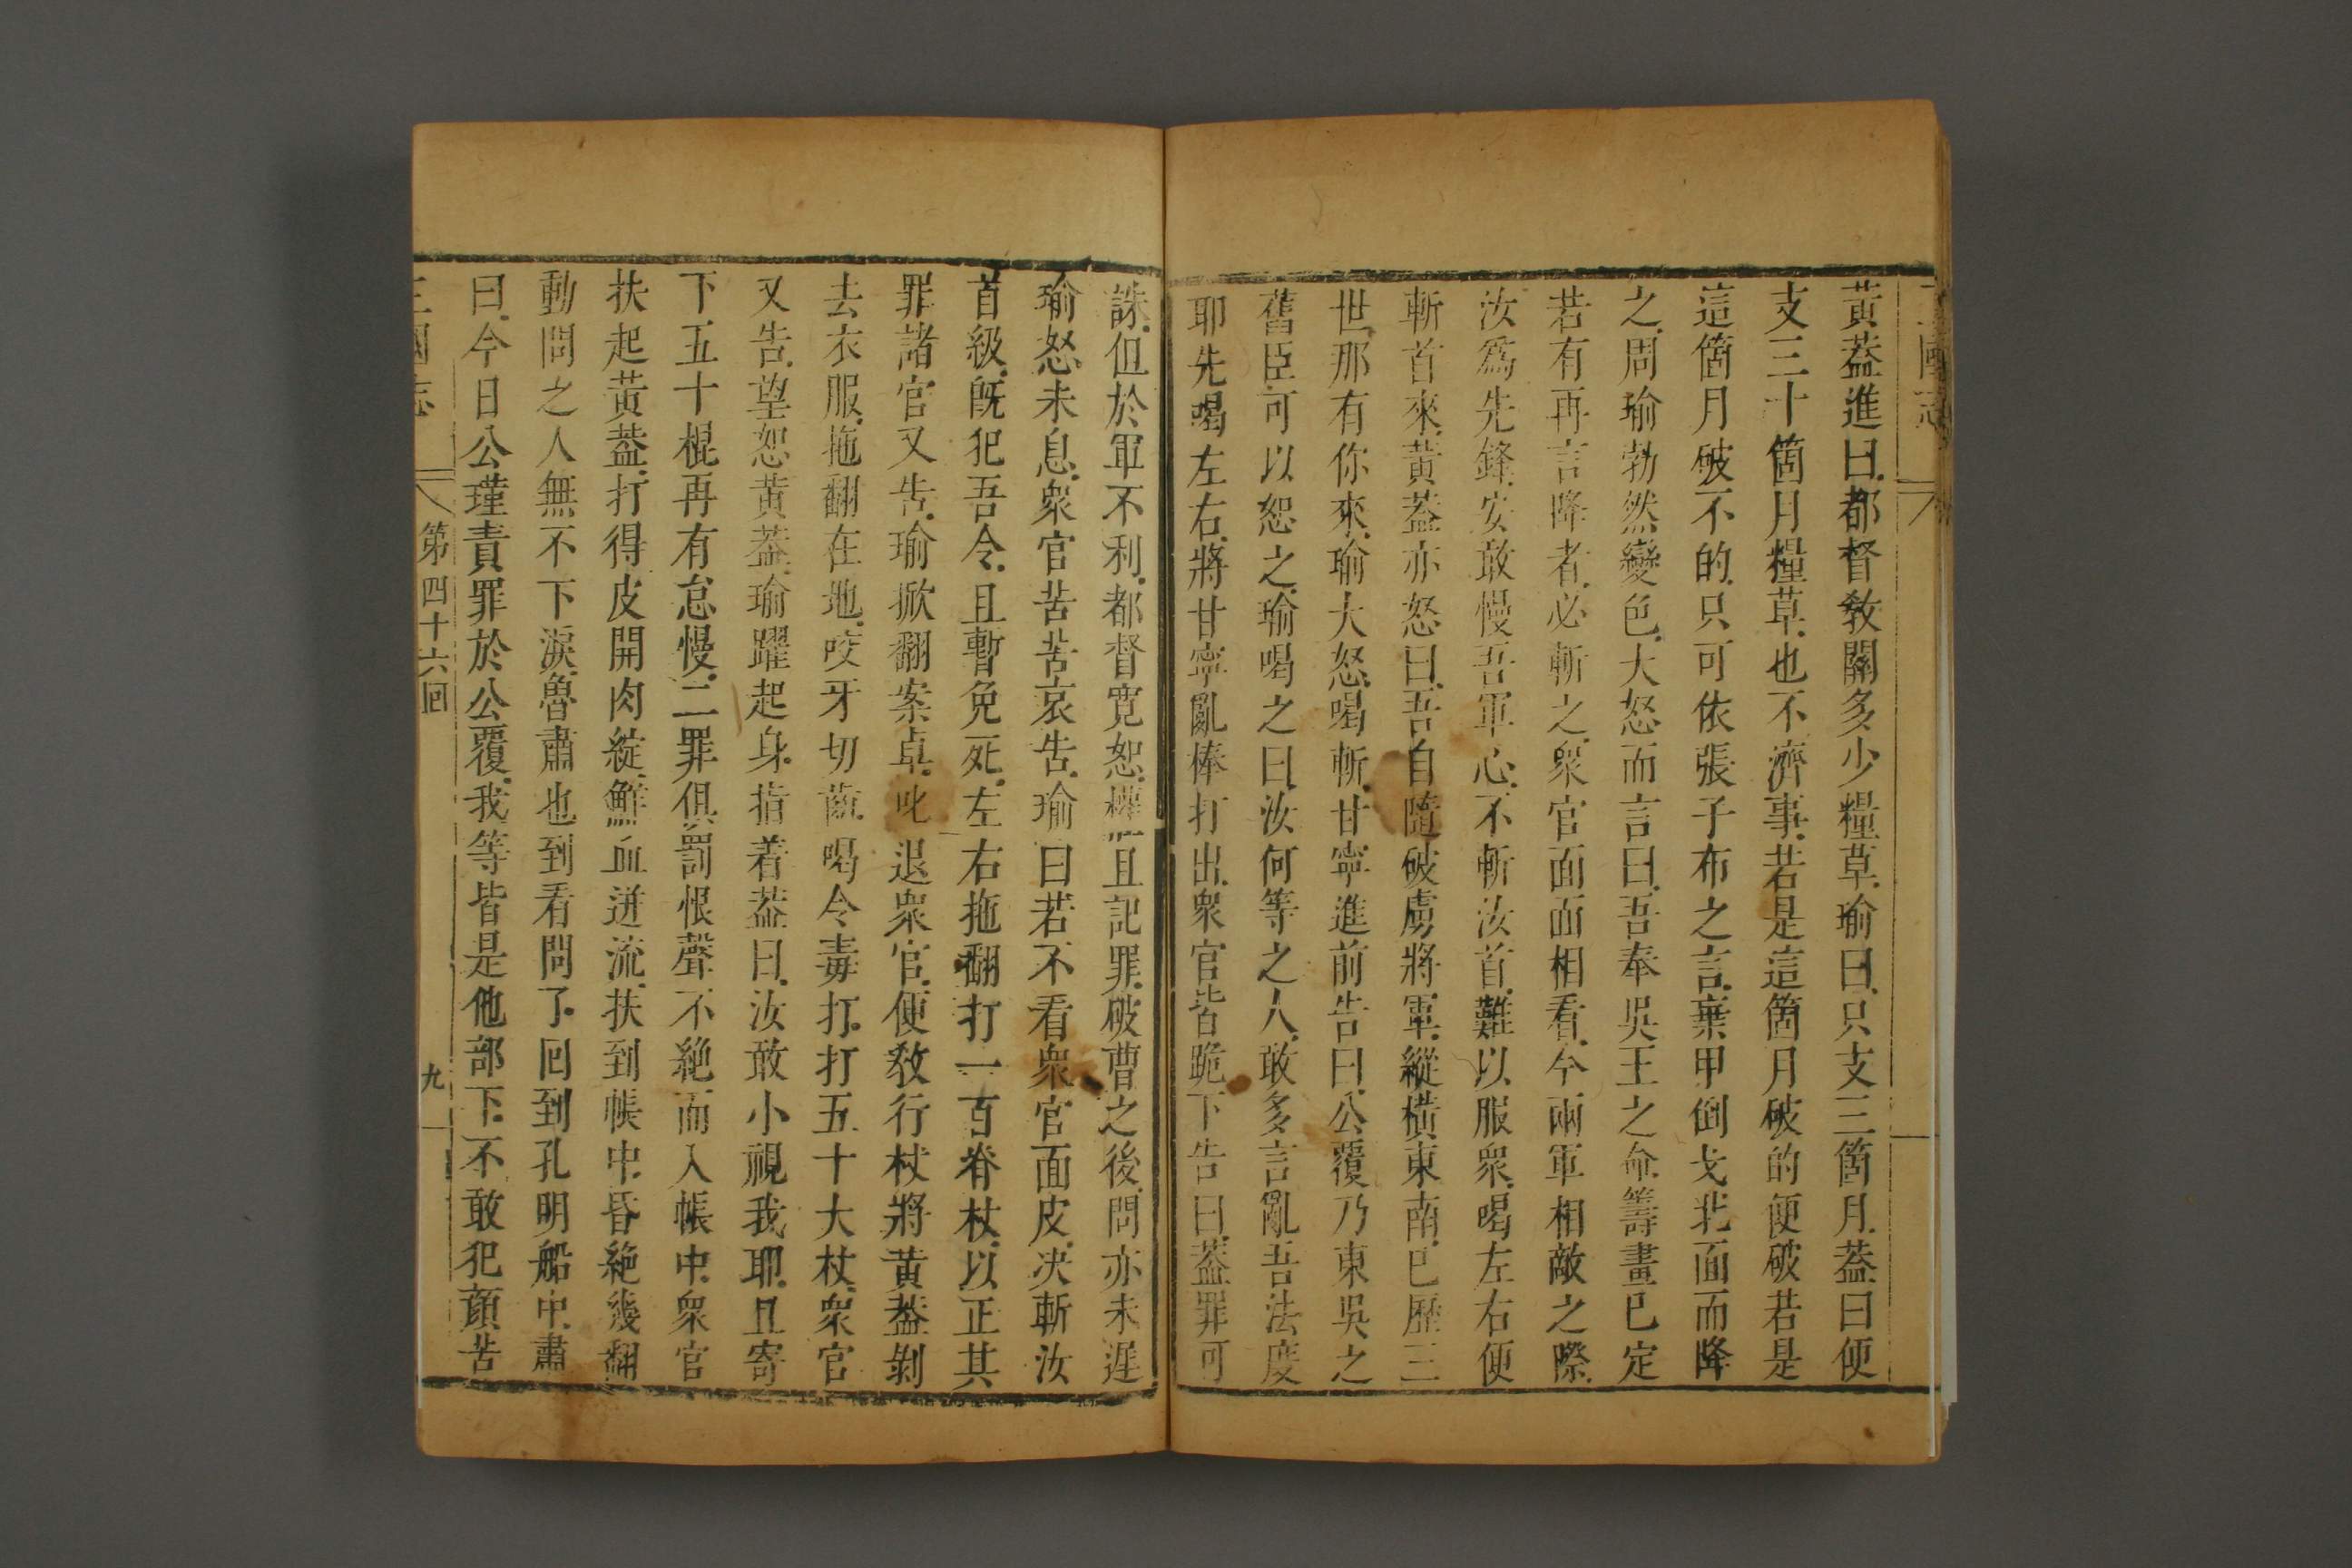 三國志
黃葢進曰都督敎關多少糧草瑜曰只支三箇月葢曰便
支三十箇月糧草也不濟事若是這箇月破的便破若是
這箇月破不的只可依張子布之言棄甲倒戈北面而降
之周瑜勃然變色大怒而言曰吾奉吳王之命籌畫已定
若有再言降者必斬之衆官面面相看今兩軍相敵之際
汝爲先鋒安敢慢吾軍心不斬汝首難以服衆喝左右便
斬首來黃葢亦怒曰吾自隨破虜將軍縱橫東南已歷三
世那有你來瑜大怒喝斬甘寧進前告曰公覆乃東吳之
舊臣可以恕之瑜喝之曰汝何等之人敢多言亂吾法度
耶先喝左右將甘寧亂棒打出衆官皆跪下告曰葢罪可
誅但於軍不利都督寬恕權且記罪破曹之後問亦未遲
瑜怒未息衆官苦苦哀告瑜曰若不看衆官面皮决斬汝
首級旣犯吾令且暫免死左右拖翻打一百脊杖以正其
罪諸官又告瑜掀翻案卓叱退衆官便敎行杖將黃葢剝
去衣服拖翻在地咬牙切齒喝令毒打打五十大杖衆官
又告望恕黃葢瑜躍起身指着葢曰汝敢小視我耶且寄
下五十棍再有怠慢二罪俱罰恨聲不絶而入帳中衆官
扶起黃葢打得皮開肉綻鮮血迸流扶到帳中昏絶幾翻
動問之人無不下淚魯肅也到看問了回到孔明船中肅
曰今日公瑾責罪於公覆我等皆是他部下不敢犯顏苦
三國志 第四十六回 九